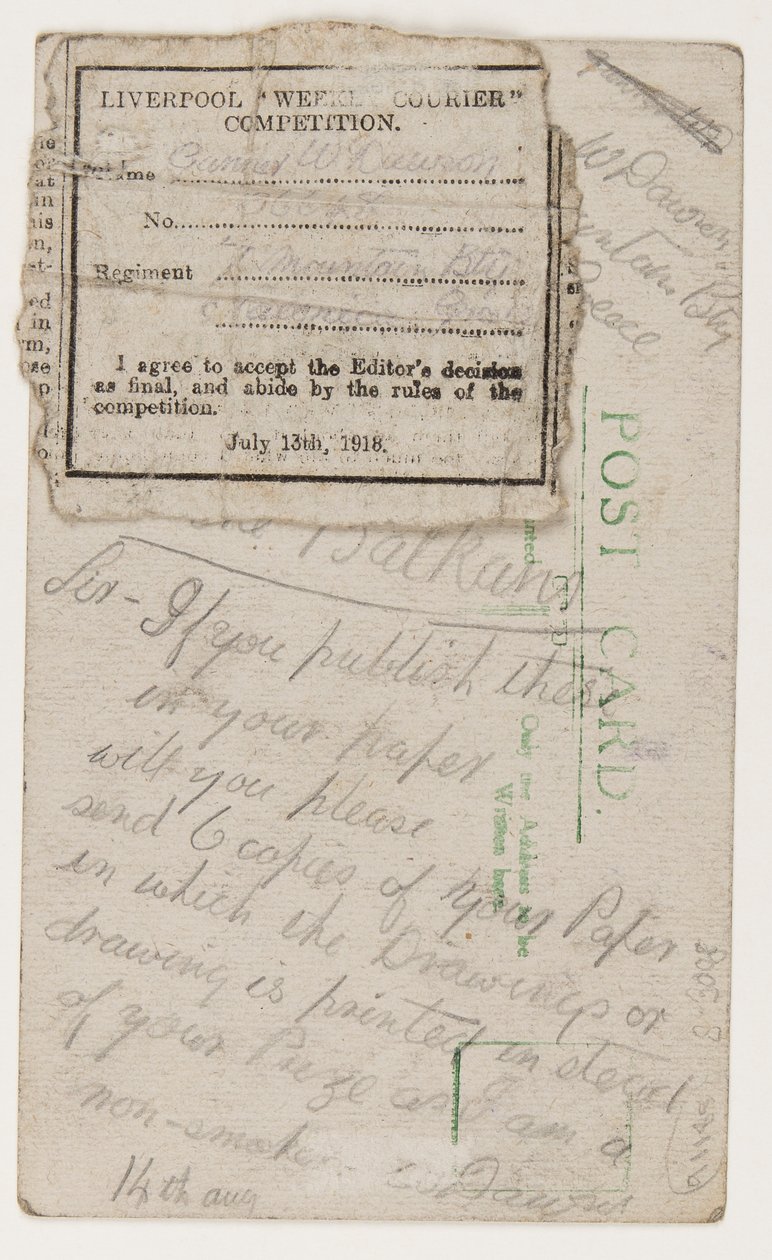 LIVERPOOL "WEEKL COURIER"
COMPETITION.
Name Gunner W Dawson
No.
Regiment Mountain Bty
I agree to accept the Editor's decision
as final, and abide by the rules of the
competition.
July 13th, 1918.
W Dawson
Bty
Greece
POST CARD.
Only the Address to be
Written here
the Balkans
Sir - If you publish these
in your paper
will you please
send 6 copies of your Paper
in which the Drawings or
drawing is printed in stead
of your Prize as I am a
non-smoker W Dawson
14th aug